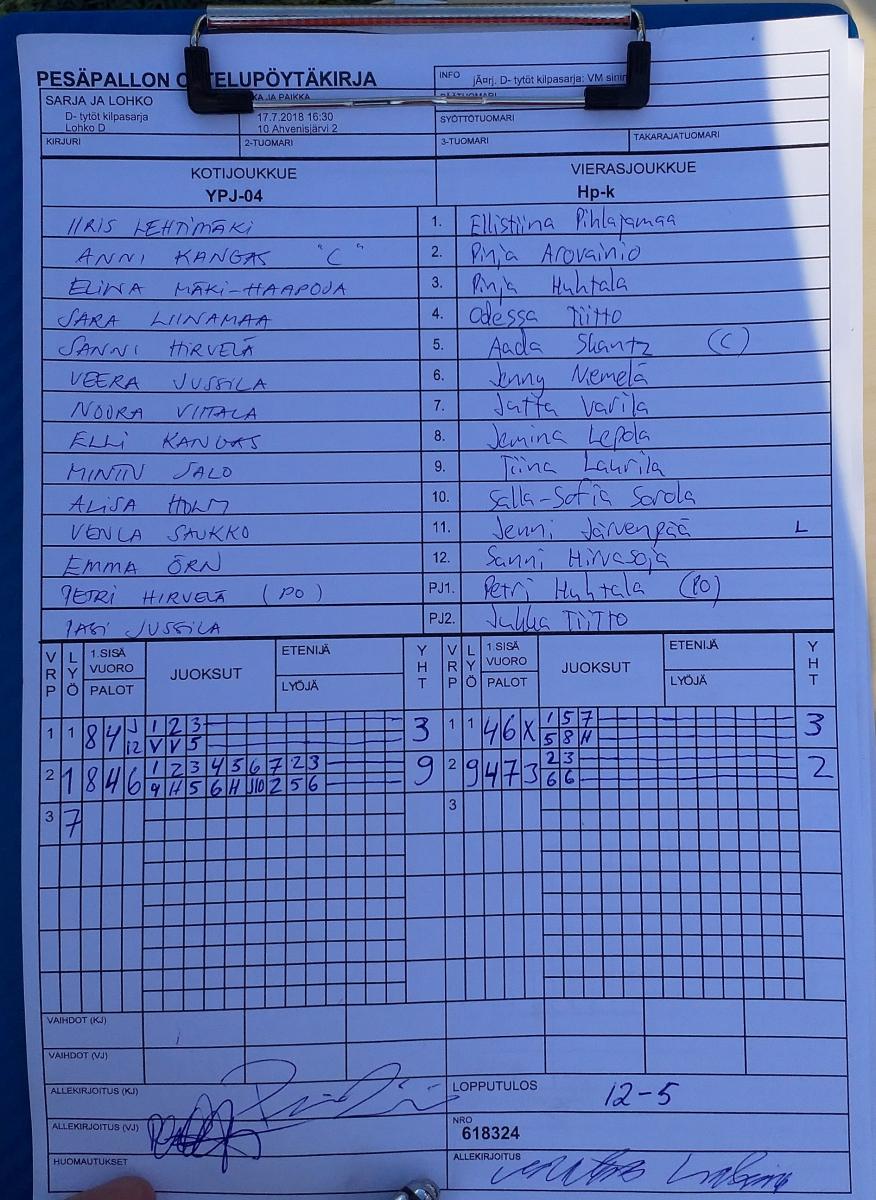 PESÄPALLON O TELUPÖYTÄKIRJA
INFO jÄ¤rj. D- tytöt kilpasarja: VM sinin
SARJA JA LOHKO
KA JA PAIKKA
D- tytöt kilpasarja
Lohko D
17.7.2018 16:30
10 Ahvenisjärvi 2
SYÖTTÖTUOMARI
KIRJURI 2-TUOMARI 3-TUOMARI TAKARAJATUOMARI
KOTIJOUKKUE VIERASJOUKKUE
YPJ-04 Hp-k
IIRIS LEHTIMÄKI 1. Ellistiina Pihlajamaa
ANNI KANGAS "C" 2. Pinja Arovainio
ELINA MÄKI-HAAPOJA 3. Pinja Huhtala
SARA LIINAMAA 4. Odessa Tiitto
SANNI HIRVELÄ 5. Aada Skantz (C)
VEERA JUSSILA 6. Jenny Niemelä
NOORA VIITALA 7. Jutta Varila
ELLI KANGAS 8. Jemina Lepola
MINTTU SALO 9. Tiina Laurila
ALISA HOLM 10. Salla-Sofia Sorola
VENLA SAUKKO 11. Jenni Järvenpää L
EMMA ÖRN 12. Sanni Hirvasoja
PETRI HIRVELÄ (PO) PJ1. Petri Huhtala (PO)
PASI JUSSILA PJ2. Jukka TIITTO
VRP LYÖ 1.SISÄ VUORO PALOT JUOKSUT ETENIJÄ LYÖJÄ YHT VRP LYÖ 1.SISÄ VUORO PALOT JUOKSUT ETENIJÄ LYÖJÄ YHT
1 1 8 4 J 1 2 3 3 1 1 4 6 X 1 5 7 3
12 V V 5 5 8 H
2 1 8 4 6 1 2 3 4 5 6 7 2 3 9 2 9 4 7 3 2 3 2
9 H 5 6 H J10 2 5 6 6 6
3 7 3
VAIHDOT (KJ)
VAIHDOT (VJ)
ALLEKIRJOITUS (KJ) LOPPUTULOS 12-5
ALLEKIRJOITUS (VJ) NRO
618324
HUOMAUTUKSET ALLEKIRJOITUS